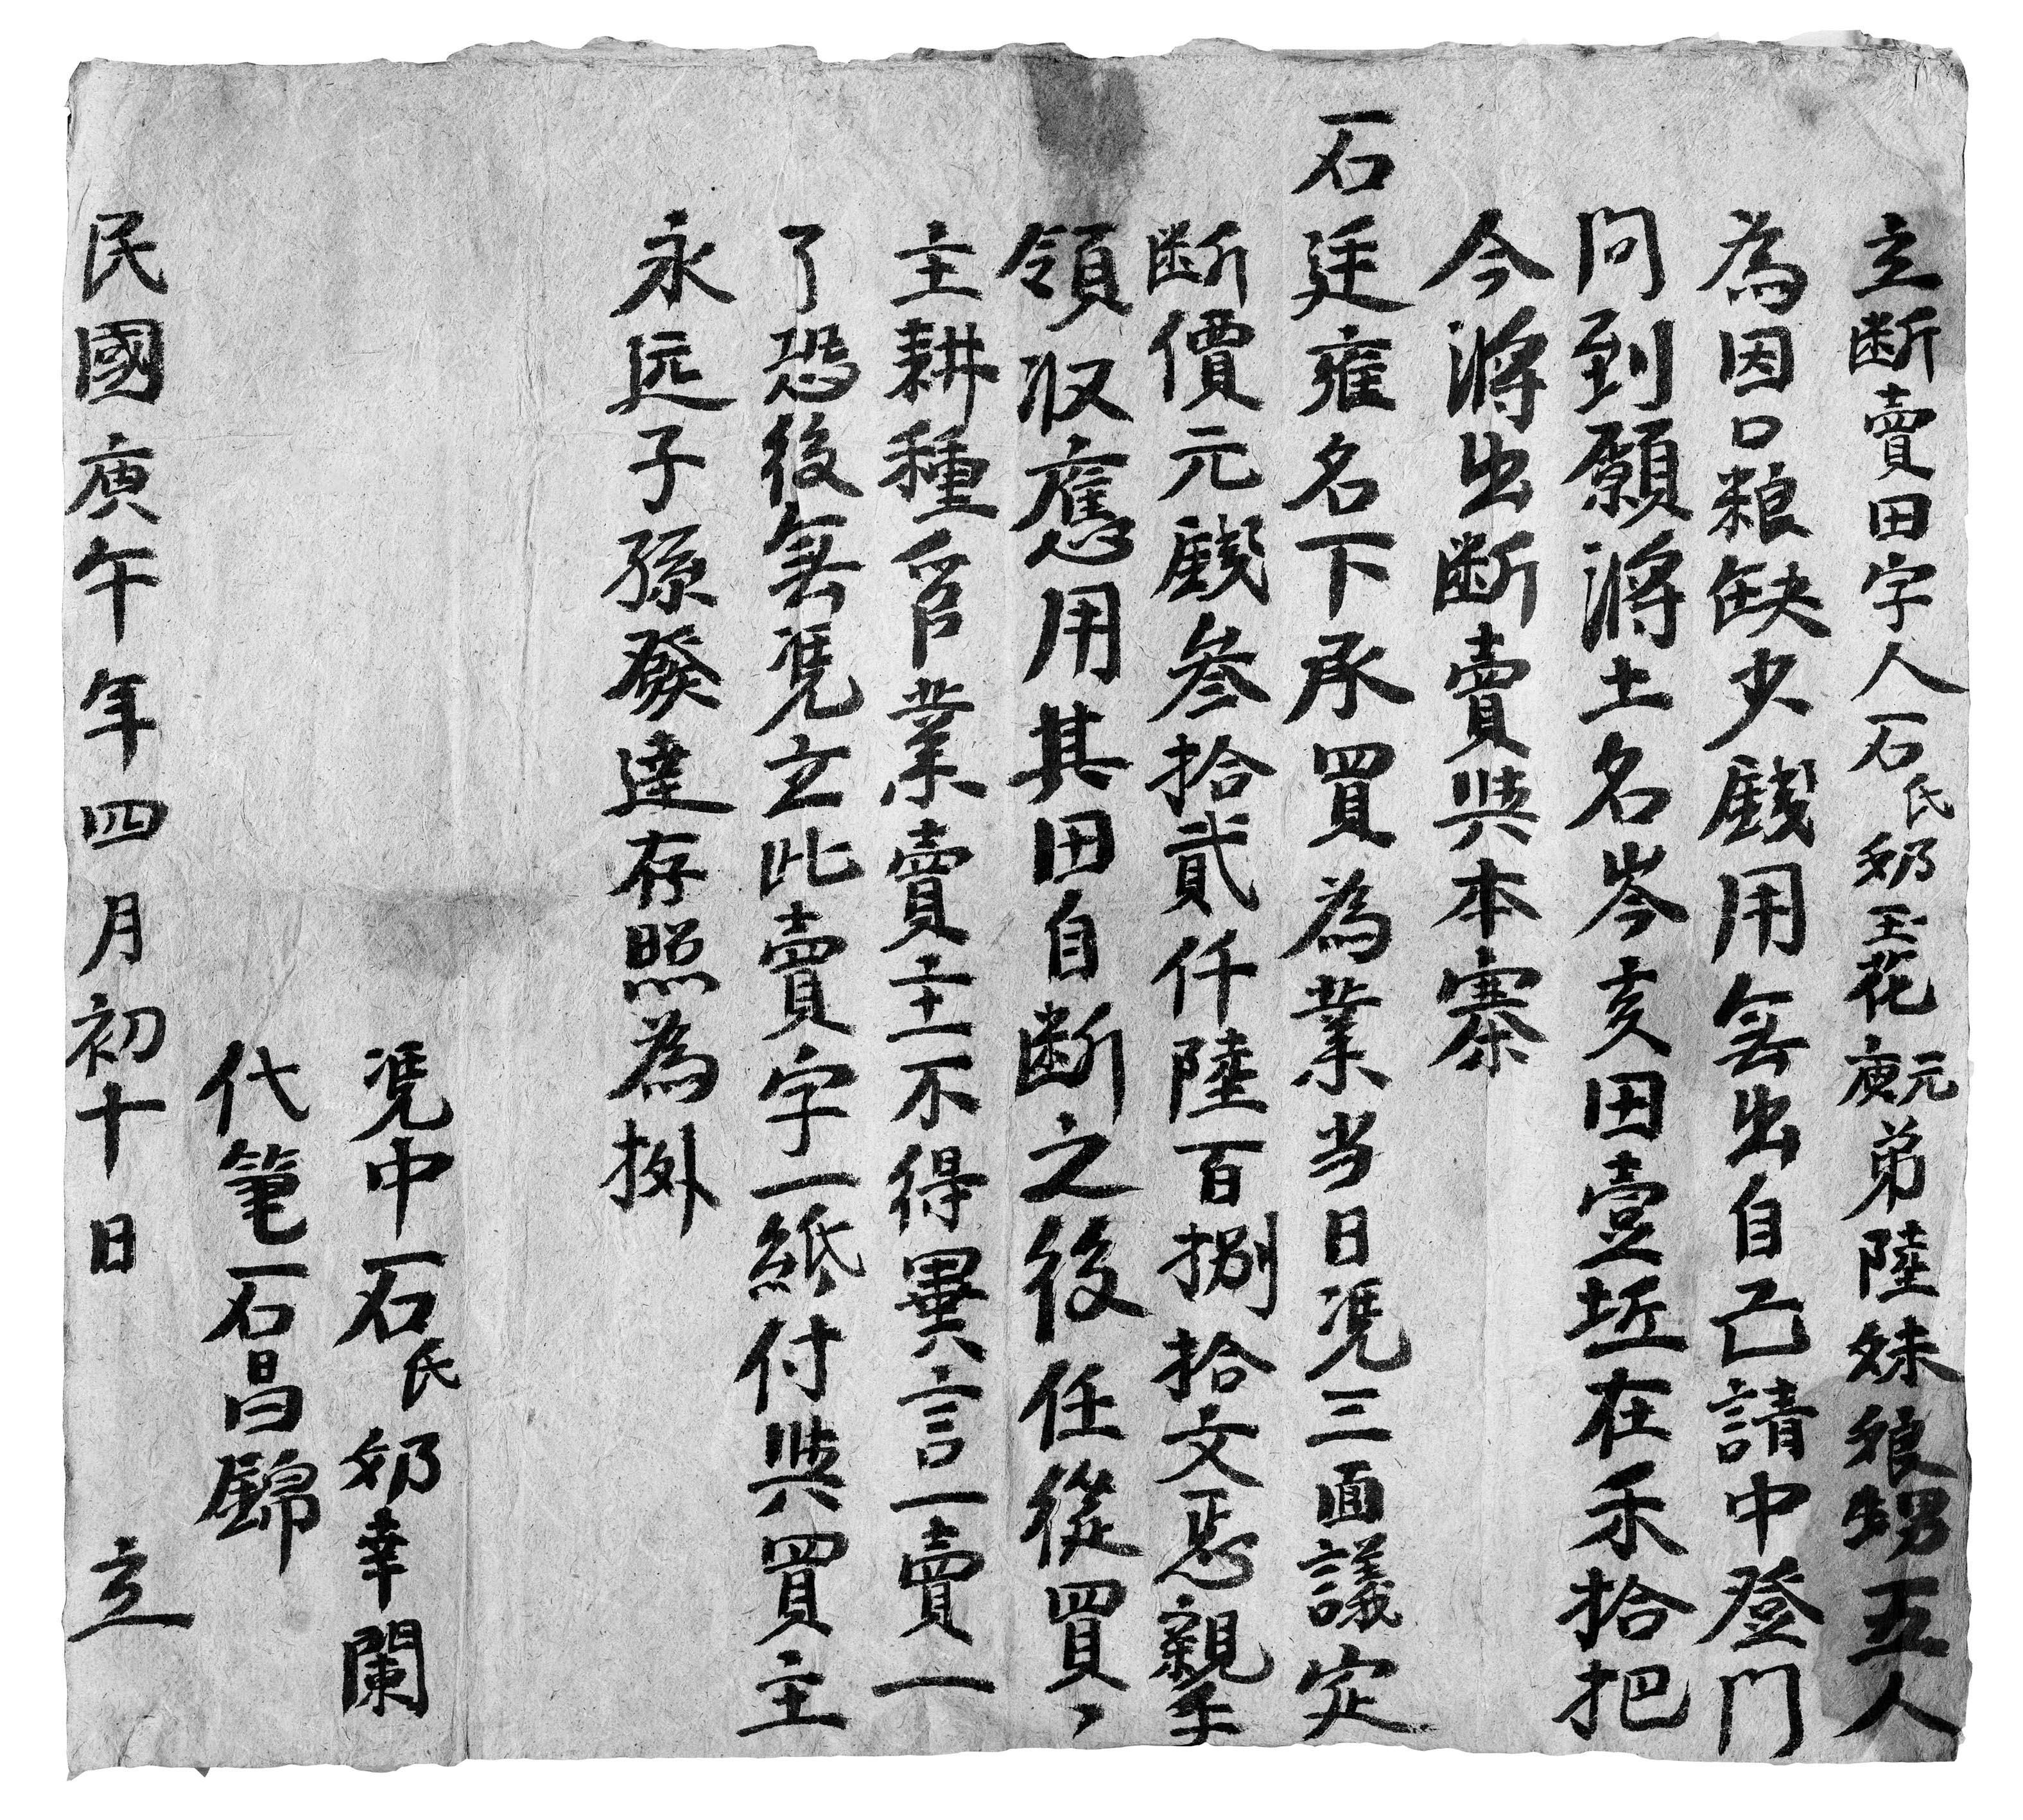 立断賣田字人石氏奶玉花元庚弟陸妹娘甥五人
為因口粮缺少錢用無出自己請中登門
问到願將土名岑亥田壹坵在禾拾把
今將出断賣與本寨
石廷雍名下承買為業当日凭三面議定
断價元錢叁拾貳仟陸百捌拾文悉親手
領收應用其田自断之後任從買丶
主耕種管業賣主不得異言一賣一
了恐後無凴立此賣字一紙付與買主
永远子孫發達存照為拠
凴中石氏奶幸闌
代筆石昌錦
民國庚午年四月初十日 立